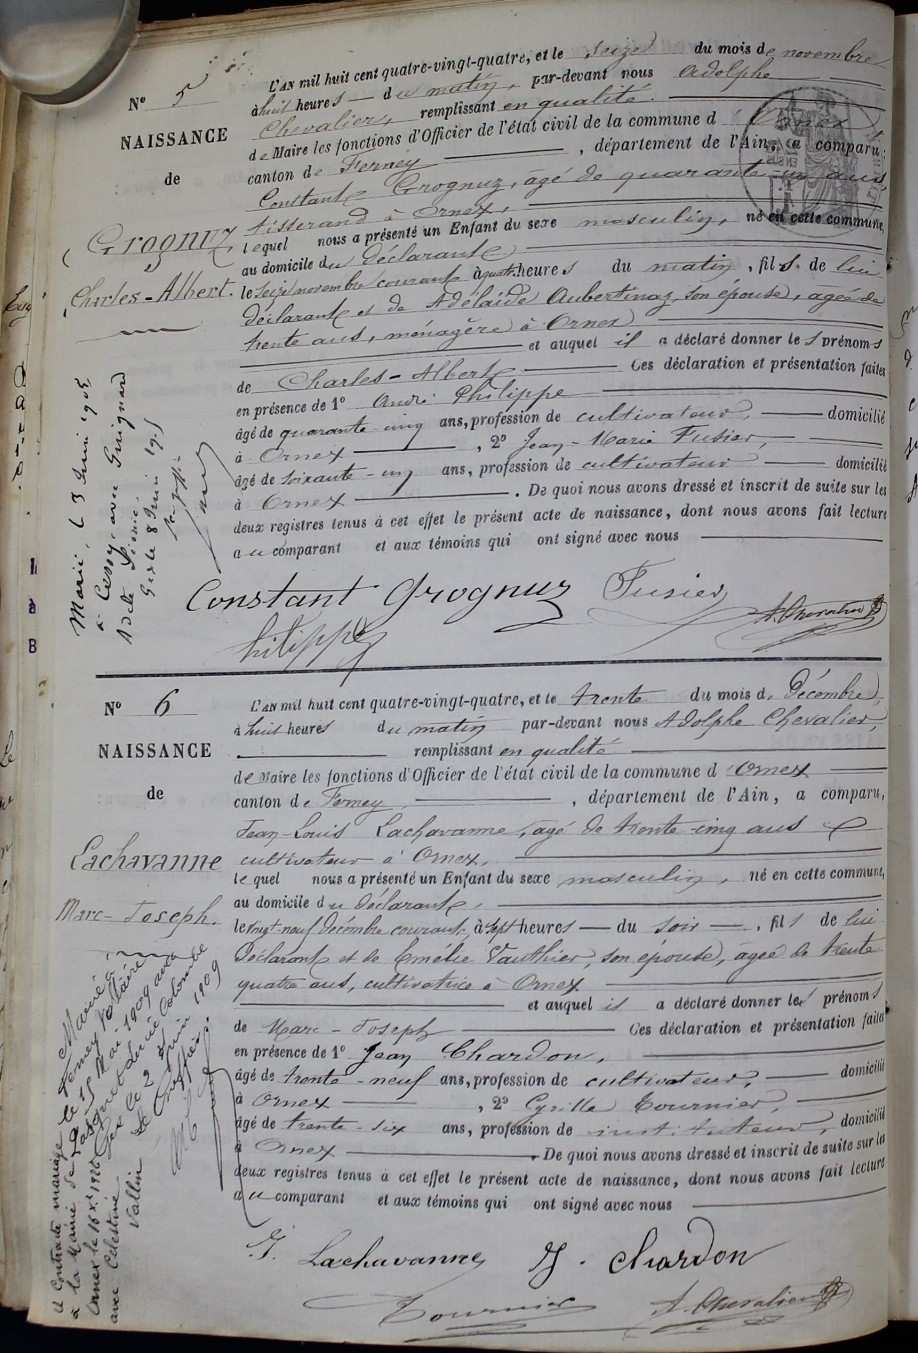 N° 5
NAISSANCE
de
Grognuz
Charles-Albert.
L'AN mil huit cent quatre-vingt-quatre, et le seize du mois de novembre
à huit heures du matin, par-devant nous Adolphe
Chevalier, remplissant en qualité
de Maire les fonctions d'Officier de l'état civil de la commune d'Ornex
canton de Ferney, département de l'Ain, a comparu,
Constant Grognuz, âgé de quarante-un ans,
tisserand à Ornex,
lequel nous a présenté un Enfant du sexe masculin, né en cette commune,
au domicile du déclarant
le seize novembre courant à quatre heures du matin, fils de lui
déclarant et de Adélaïde Aubertinaz, son épouse, agée de
trente ans, ménagère à Ornex
et auquel il a déclaré donner les prénoms
de Charles-Albert Ces déclaration et présentation faites
en présence de 1° André Philippe
âgé de quarante cinq ans, profession de cultivateur, domicilié
à Ornex, 2° Jean-Marie Fusier,
âgé de soixante-un ans, profession de cultivateur domicilié
à Ornex. De quoi nous avons dressé et inscrit de suite sur les
deux registres tenus à cet effet le présent acte de naissance, dont nous avons fait lecture
au comparant et aux témoins qui ont signé avec nous
Marié, le 3 Juin
à Cessy, avec Guignard
Gex le 8 Juin
Constant Grognuz Fusier
A. Chevalier
hilippe
N° 6
NAISSANCE
de
Lachavanne
Marc-Joseph.
L'AN mil huit cent quatre-vingt-quatre, et le trente du mois de Décembre,
à huit heures du matin par-devant nous Adolphe Chevalier,
remplissant en qualité
de Maire les fonctions d'Officier de l'état civil de la commune d'Ornex
canton de Ferney, département de l'Ain, a comparu,
Jean-Louis Lachavanne, agé de trente cinq ans
cultivateur à Ornex,
lequel nous a présenté un Enfant du sexe masculin, né en cette commune,
au domicile du déclarant,
le vingt-neuf Décembre courant, à sept heures du soir, fils de lui
Déclarant et de Emélie Vauthier, son épouse, agée de trente
quatre ans, cultivatrice à Ornex
et auquel il a déclaré donner les prénoms
de Marc-Joseph Ces déclaration et présentation faites
en présence de 1° Jean Chardon,
âgé de trente-neuf ans, profession de cultivateur, domicilié
à Ornex, 2° Cyrille Tournier,
âgé de trente-six ans, profession de instituteur, domicilié
à Ornex. De quoi nous avons dressé et inscrit de suite sur la
deux registres tenus à cet effet le présent acte de naissance, dont nous avons fait lecture
au comparant et aux témoins qui ont signé avec nous
Marié à
Ferney Voltaire
le 15 Mai 1909 avec
Gex le 2 Juin 1909
a contracté mariage
à la Mairie de
Ornex le 16 Xe 1926
avec Célestine
Vallin
Lachavanne J. Chardon
Tournier A. Chevalier